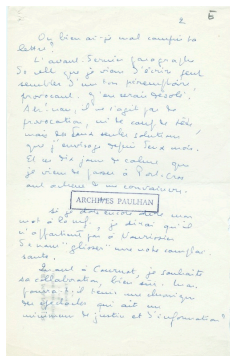 2
Ou bien ai-je mal compris ta
lettre?
L'avant-dernier paragraphe
de celle que je viens d'écrire peut
sembler d'un ton péremptoire,
provocant. J'en serais désolé.
il ne s'agit pas de
provocation, ni de coup de tête,
mais des seules solutions
que j'envisage depuis deux mois.
Et ce dix jours de calme que
je viens de passer à Port-Cros
ont achevé de me convaincre.
ARCHIVES PAULHAN
Si je dois encore dire un
mot à , je dirai qu'il
n'appartient pas à Nourissier
de nous "glisser" une note
Quant à Cournot, je souhaite
sa collaboration, bien sûr. Mais
pourra-t-il tenir une chronique
des spectacles qui ait un
minimum de justice et d'information?